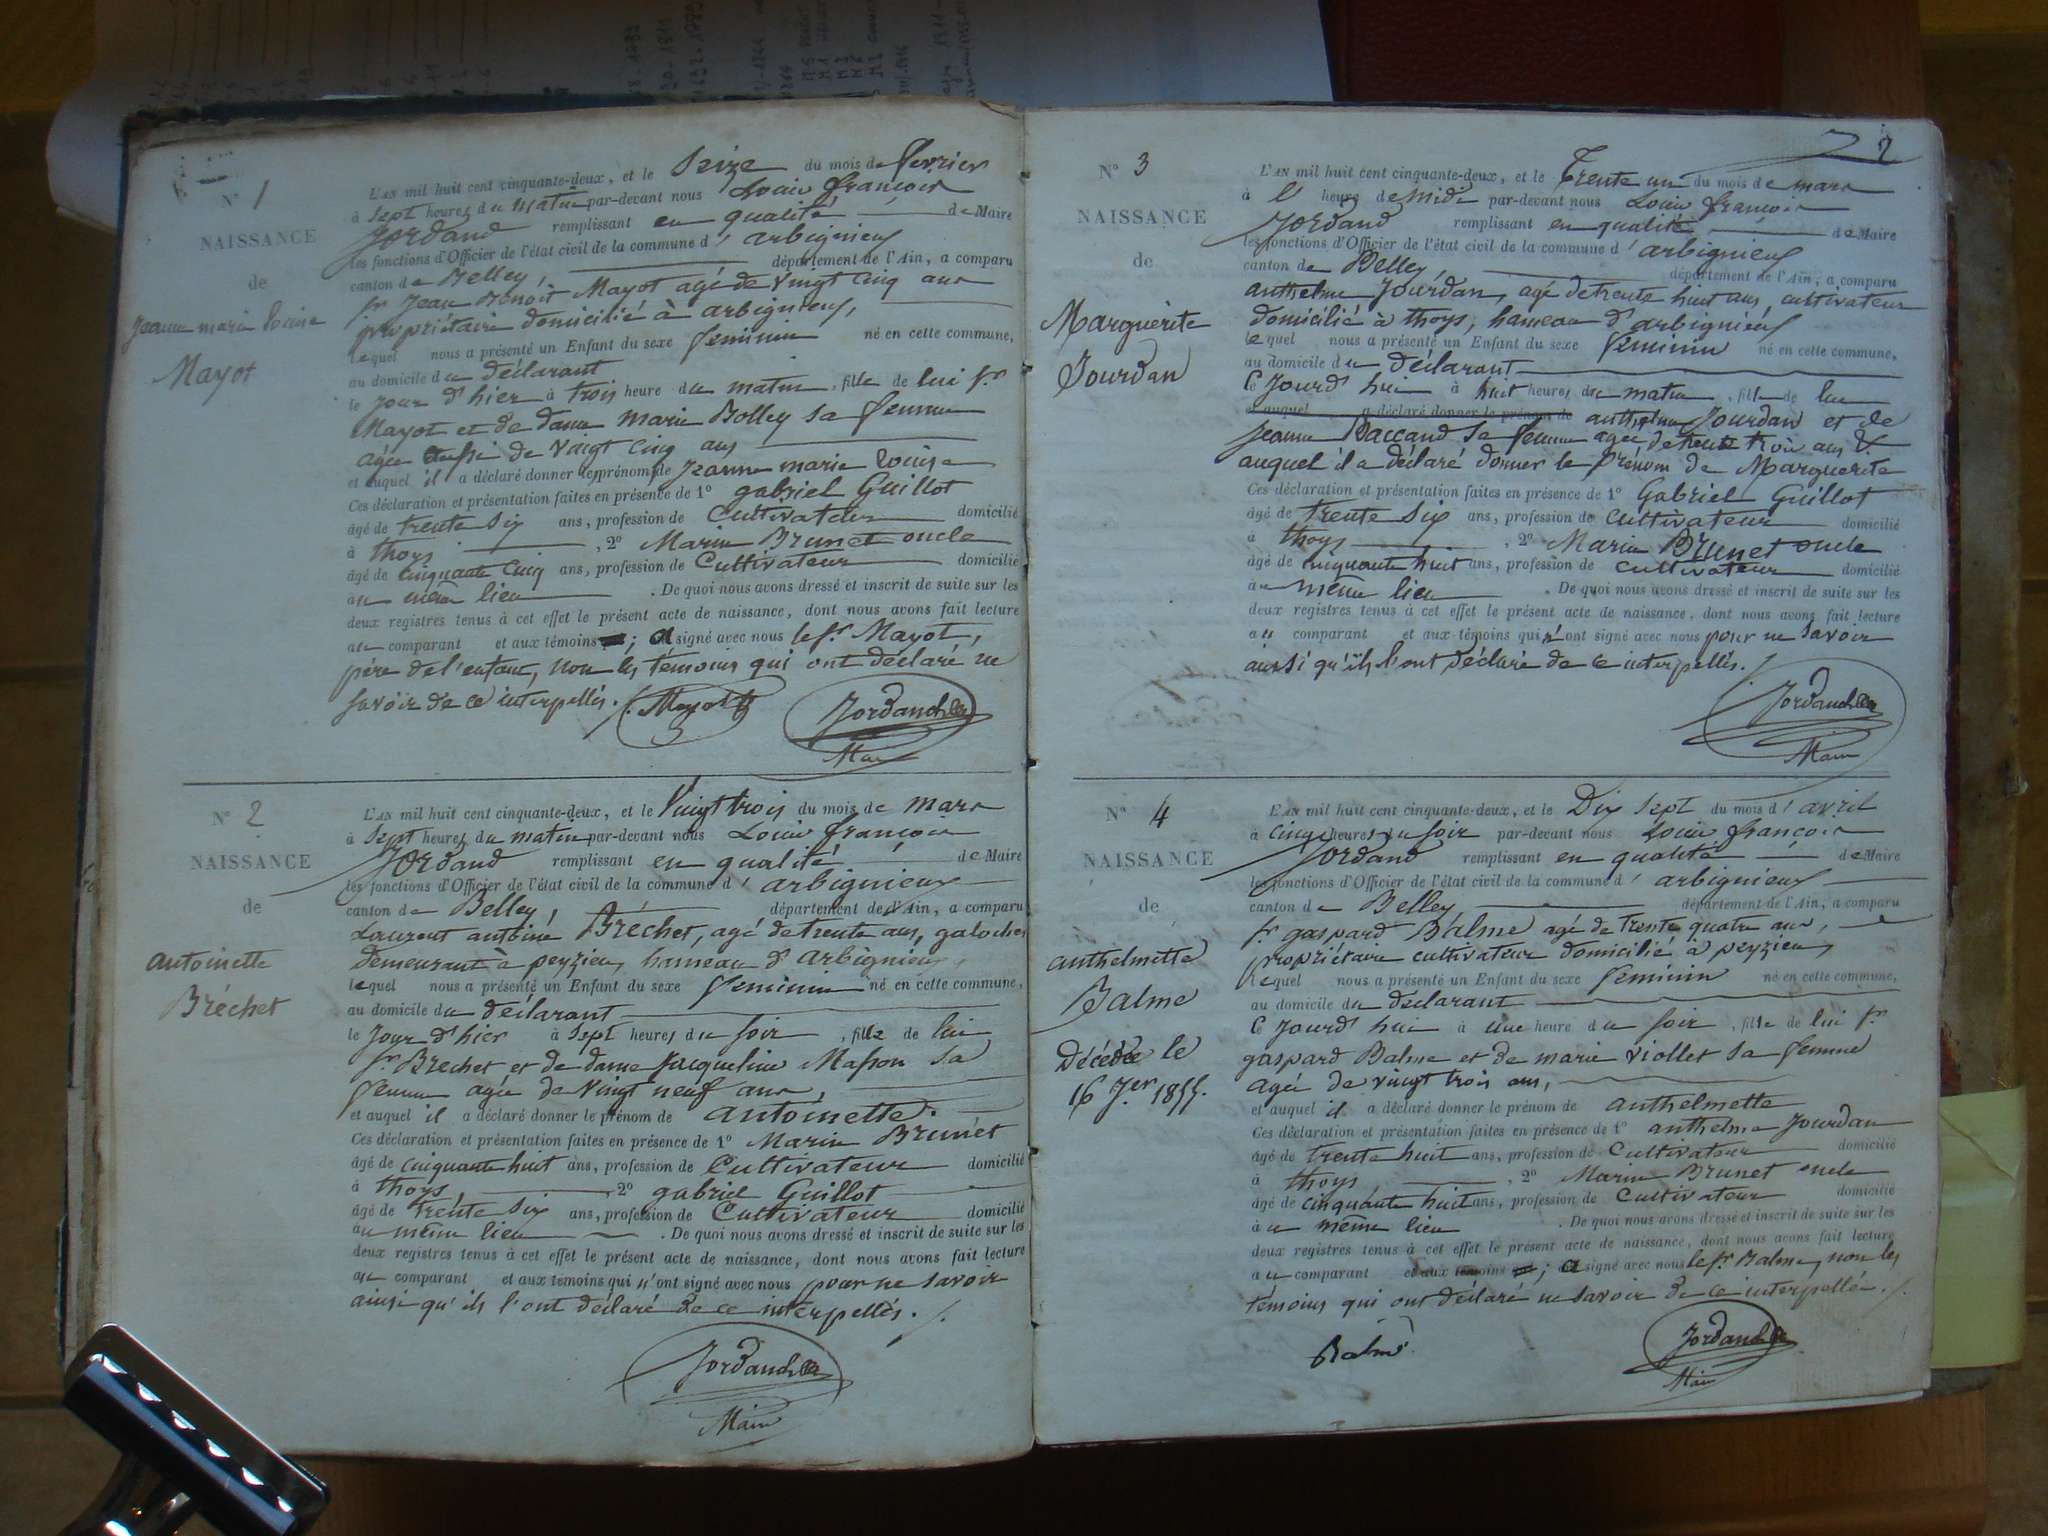 N° 1
NAISSANCE
de
Jeanne marie Louise
Mayot
L'AN mil huit cent cinquante-deux, et le Seize du mois de fevrier
à Sept heures du matin par-devant nous Louis françois
Jordand remplissant en qualité de Maire
les fonctions d'Officier de l'état civil de la commune d' arbignieux
canton de Belley, département de l'Ain, a comparu
Sr Jean Benoit Mayot agé de vingt cinq ans
propriétaire domicilié à arbignieux,
lequel nous a présenté un Enfant du sexe feminin né en cette commune,
au domicile du déclarant
le jour d'hier à trois heure du matin, fille de lui Sr
Mayot et de dame marie Bolley sa femme
agée aussi de vingt cinq ans
et auquel il a déclaré donner les prénom de Jeanne marie Louise
Ces déclaration et présentation faites en présence de 1° gabriel Guillot
âgé de trente six ans, profession de Cultivateur domicilié
à thoys, 2° Marin Brunet oncle
âgé de cinquante cinq ans, profession de Cultivateur domicilié
au même lieu. De quoi nous avons dressé et inscrit de suite sur les
deux registres tenus à cet effet le présent acte de naissance, dont nous avons fait lecture
au comparant et aux témoins; a signé avec nous le Sr Mayot,
père de l'enfant, non les témoins qui ont déclaré ne
savoir de ce interpellés.
Mayot Jordand
Maire
N° 2
NAISSANCE
de
antoinette
Bréchet
L'AN mil huit cent cinquante-deux, et le Vingt trois du mois de mars
à Sept heures du matin par-devant nous Louis françois
Jordand remplissant en qualité de Maire
les fonctions d'Officier de l'état civil de la commune d' arbignieux
canton de Belley, département de l'Ain, a comparu
Laurent antoine Bréchet, agé de trente ans, galochier
demeurant a peyzieu, hameau d'arbignieux,
lequel nous a présenté un Enfant du sexe feminin né en cette commune,
au domicile du déclarant
le Jour d'hier à Sept heures du soir, fille de lui
Sr Brechet et de dame Jacqueline Masson sa
femme agée de vingt neuf ans,
et auquel il a déclaré donner le prénom de antoinette.
Ces déclaration et présentation faites en présence de 1° Marin Brunet
âgé de cinquante huit ans, profession de Cultivateur domicilié
à thoys, 2° gabriel Guillot
âgé de trente six ans, profession de Cultivateur domicilié
au même lieu. De quoi nous avons dressé et inscrit de suite sur les
deux registres tenus à cet effet le présent acte de naissance, dont nous avons fait lecture
au comparant et aux témoins qui n'ont signé avec nous pour ne savoir
ainsi qu'ils l'ont déclaré de ce interpellés.
Jordand
Maire
2
N° 3
NAISSANCE
de
Marguerite
Jourdan
L'AN mil huit cent cinquante-deux, et le Trente un du mois de mars
à l' heure de midi par-devant nous Louis françois
Jordand remplissant en qualité de Maire
les fonctions d'Officier de l'état civil de la commune d' arbignieux
canton de Belley département de l'Ain, a comparu
anthelme Jourdan, agé de trente huit ans, cultivateur
domicilié à thoys, hameau d'arbignieux
lequel nous a présenté un Enfant du sexe feminin né en cette commune,
au domicile du déclarant
Ce Jourd'hui à huit heures du matin, fille de lui
et auquel a déclaré donner le prénom de anthelme Jourdan et de
Jeanne Baccand sa femme agée de trente trois ans &
auquel il a déclaré donner le Prénom de Marguerite
Ces déclaration et présentation faites en présence de 1° Gabriel Guillot
âgé de trente six ans, profession de Cultivateur domicilié
à thoys, 2° Marin Brunet oncle
âgé de cinquante huit ans, profession de cultivateur domicilié
au même lieu. De quoi nous avons dressé et inscrit de suite sur les
deux registres tenus à cet effet le présent acte de naissance, dont nous avons fait lecture
au comparant et aux témoins qui n'ont signé avec nous pour ne savoir
ainsi qu'ils l'ont déclaré de ce interpellés.
Jordand
Maire
N° 4
NAISSANCE
de
anthelmette
Balme
Décédée le
16 Jer 1855.
L'AN mil huit cent cinquante-deux, et le Dix Sept du mois d'avril
à cinq heures du soir par-devant nous Louis françois
Jordand remplissant en qualité de Maire
les fonctions d'Officier de l'état civil de la commune d' arbignieux
canton de Belley département de l'Ain, a comparu
Sr gaspard Balme agé de trente quatre ans,
propriétaire cultivateur domicilié à peyzieu,
lequel nous a présenté un Enfant du sexe feminin né en cette commune,
au domicile du déclarant
Ce Jourd'hui à une heure du soir, fille de lui Sr
gaspard Balme et de marie Viollet sa femme
agée de vingt trois ans,
et auquel il a déclaré donner le prénom de anthelmette
Ces déclaration et présentation faites en présence de 1° anthelme Jourdan
âgé de trente huit ans, profession de Cultivateur domicilié
à thoys, 2° Marin Brunet oncle
âgé de cinquante huit ans, profession de Cultivateur domicilié
au même lieu. De quoi nous avons dressé et inscrit de suite sur les
deux registres tenus à cet effet le présent acte de naissance, dont nous avons fait lecture
au comparant et aux témoins; a signé avec nous le Sr Balme, non les
témoins qui ont déclaré ne savoir de ce interpellés.
Balme Jordand
Maire